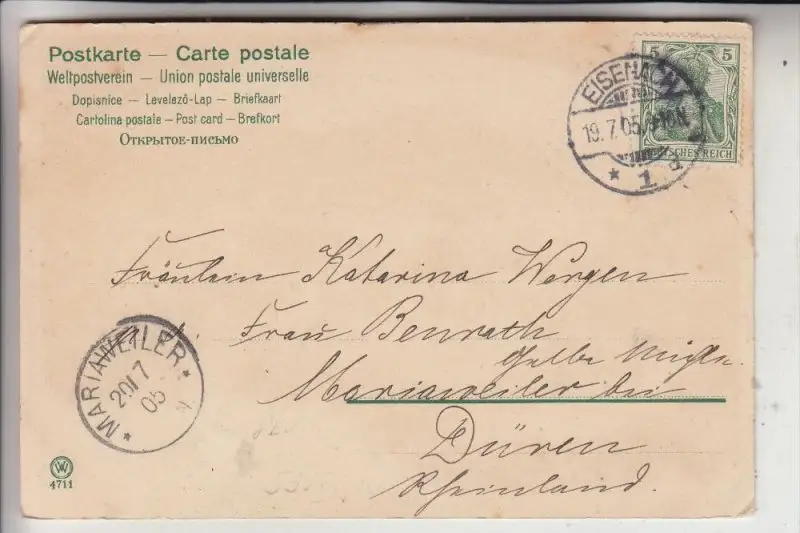 Postkarte — Carte postale
Weltpostverein — Union postale universelle
Dopisnice — Levelező-Lap — Briefkaart
Cartolina postale — Post card — Brefkort
Открытое-письмо
EISENACH
19.7.05
* 1 d
5 5
DEUTSCHES REICH
Fräulein Katarina Wergen
Frau Benrath
Gelbe
Mariaweiler bei
Düren
Rheinland.
* MARIAWEILER *
20/7
05
W
4711